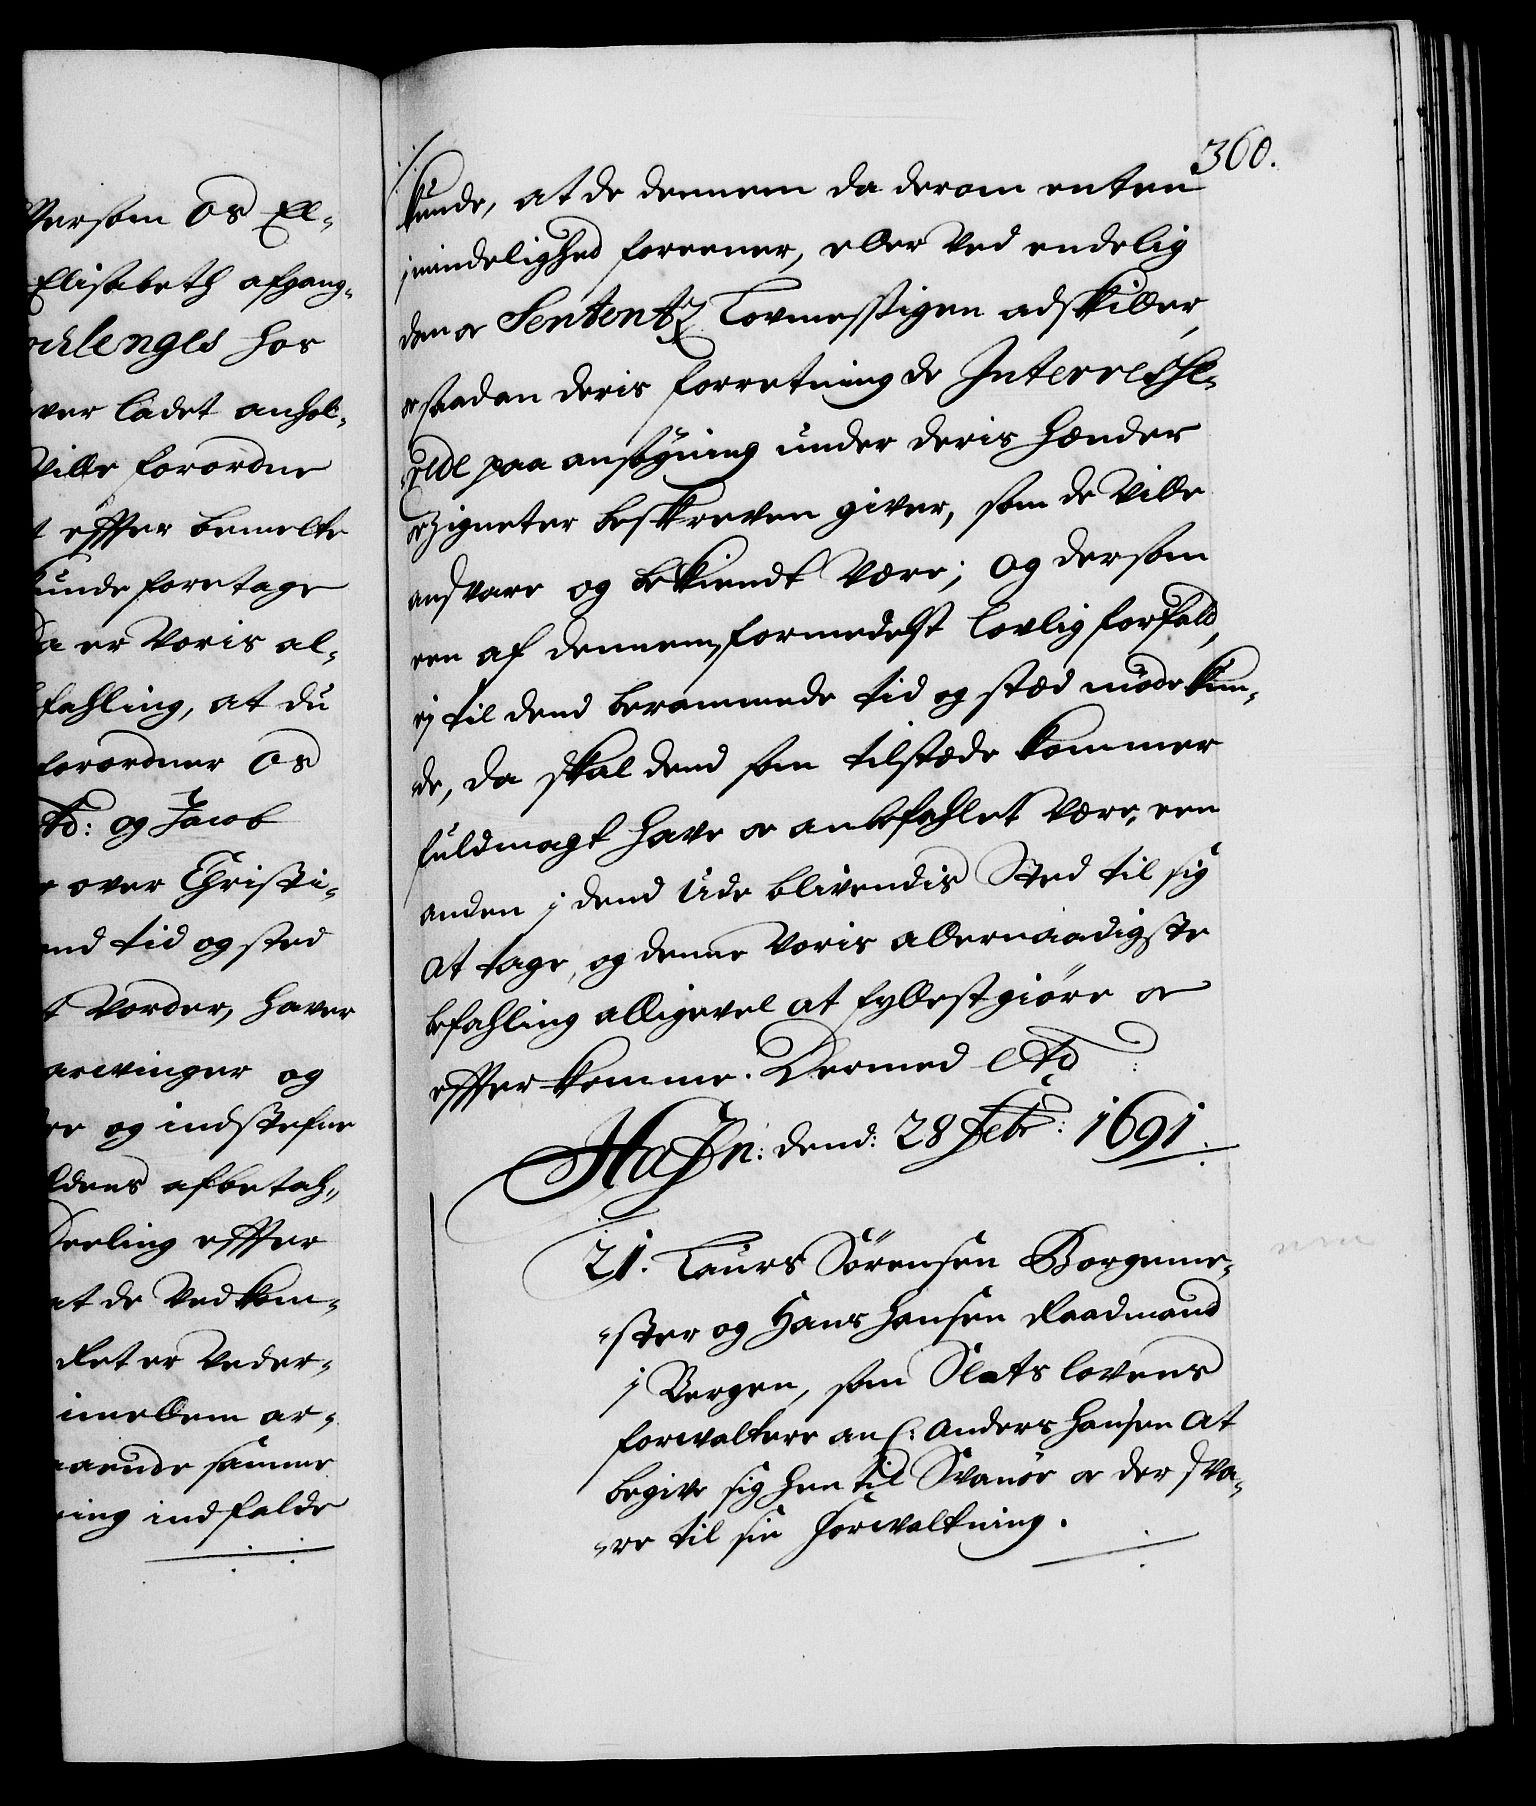 Versom Os El-
Elisabeth afgang-
lenges hos
ver ladet anhol-
Ville forordne
effter bemelte
kunde foretage
Da er Voris al-
fahling, at du
forordner Os
td: og Jacob
over Christi-
tid og sted
Vorder, haver
arvinger og
og indstefne
afbetah-
Deeling effter
at de Vedkom-
Ret er Veder-
imellem ar-
samme
ning indfalde
360.
kunde, at de dennem da derom enten
i mindelighed foreener, eller Ved endelig
dom oc Sententz Lovmessigen adskiller,
oc saadan deris forretning de Interresse-
rede paa ansøgning under deris hænder
oc Zigneter beskreven giver, som de Ville
andsvare og bekiendt Være; Og dersom
een af dennem, formedelst lovlig forfald,
ej til dend berammede tid og stæd møde kun-
de, da skal dend som tilstæde kommer
fuldmagt have oc anbefahlet Være, een
anden i dend Ude blivendis Sted til sig
at tage, og denne Voris allernaadigste
befahling alligevel at fyllestgiøre oc
effterkomme. Dermed etc
Hafn: dend: 28 Febr: 1691.
21. Laurs Sörensen Borgeme-
ster og Hans Hansen Raadmand
i Bergen, som Slots lovens
forvaltere anl: Anders Hansen At
begive sig hen til Svanöe oc der sva-
re til sin Forvaltning.